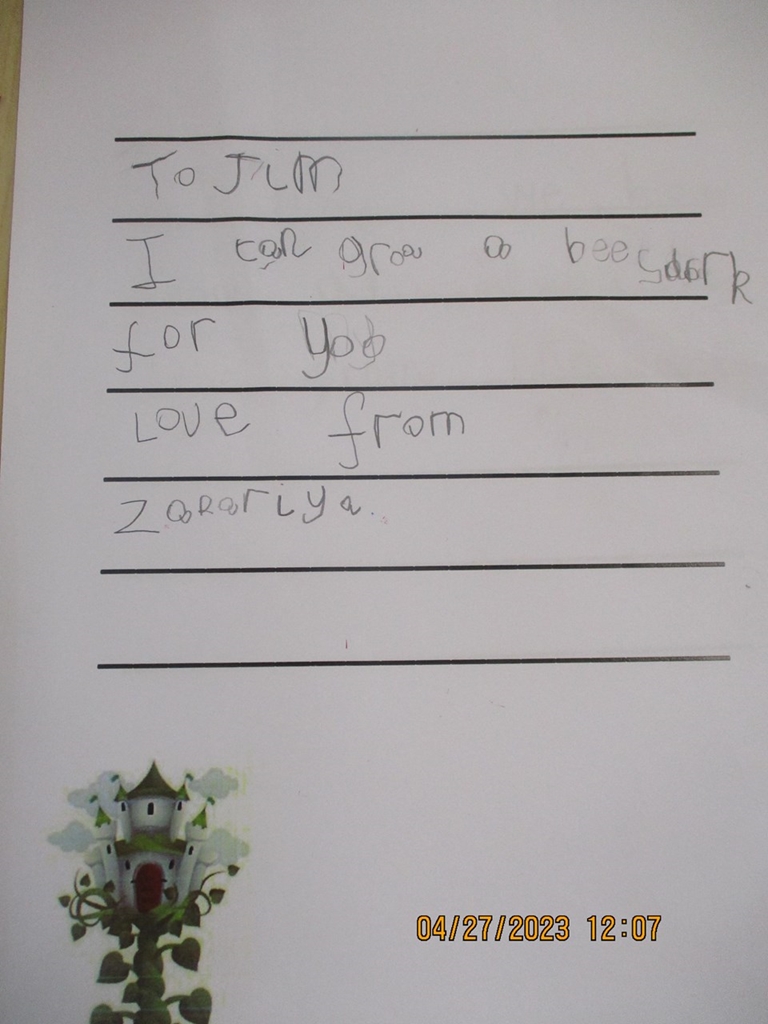 To Jim
I can groa a bee sdark
for yoo
Love from
Zakariya.
04/27/2023 12:07